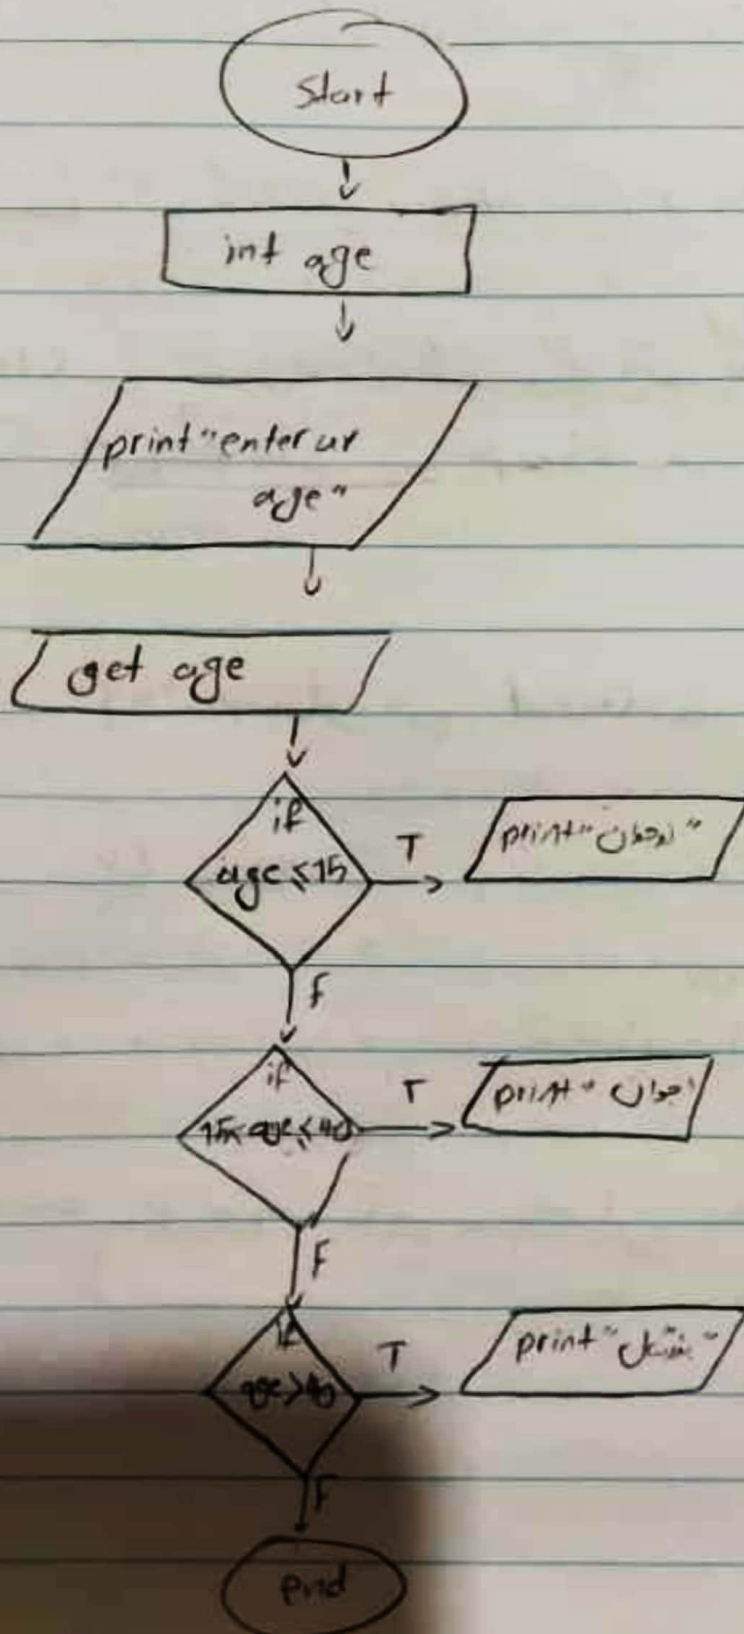 Start
int age
print "enter ur
age"
get age
if
age ≤ 15
T
print "نوجوان"
F
if
15 < age ≤ 40
T
print "جوان"
F
if
age > 40
T
print
F
end